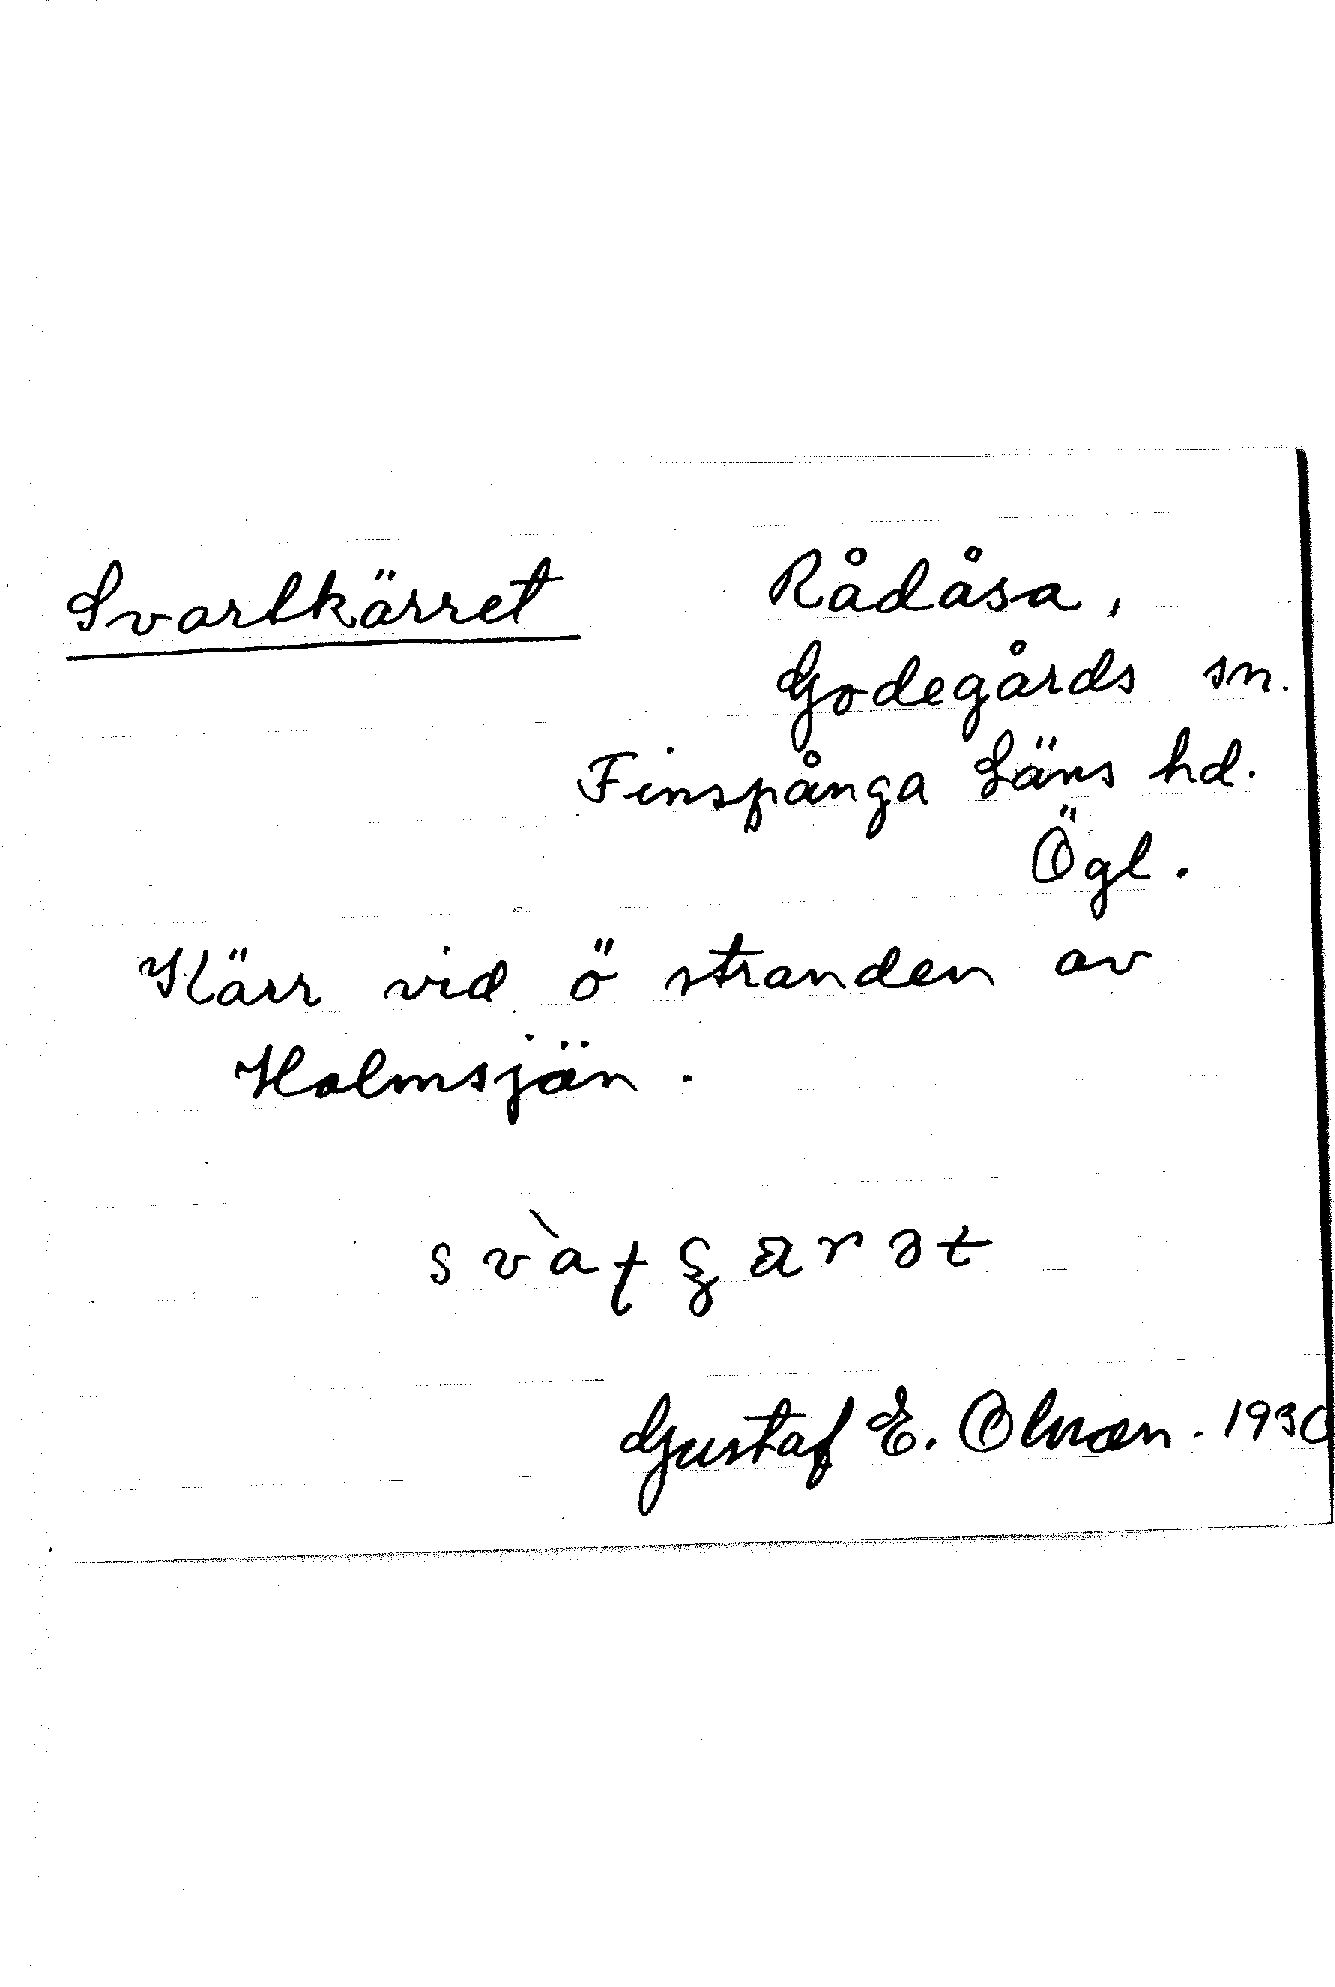 Svartkärret Rådåsa,
Godegårds sn.
Finspånga Läns hd.
Ögl.
Kärr vid ö stranden av
Holmsjön.
Gustaf E. 1930